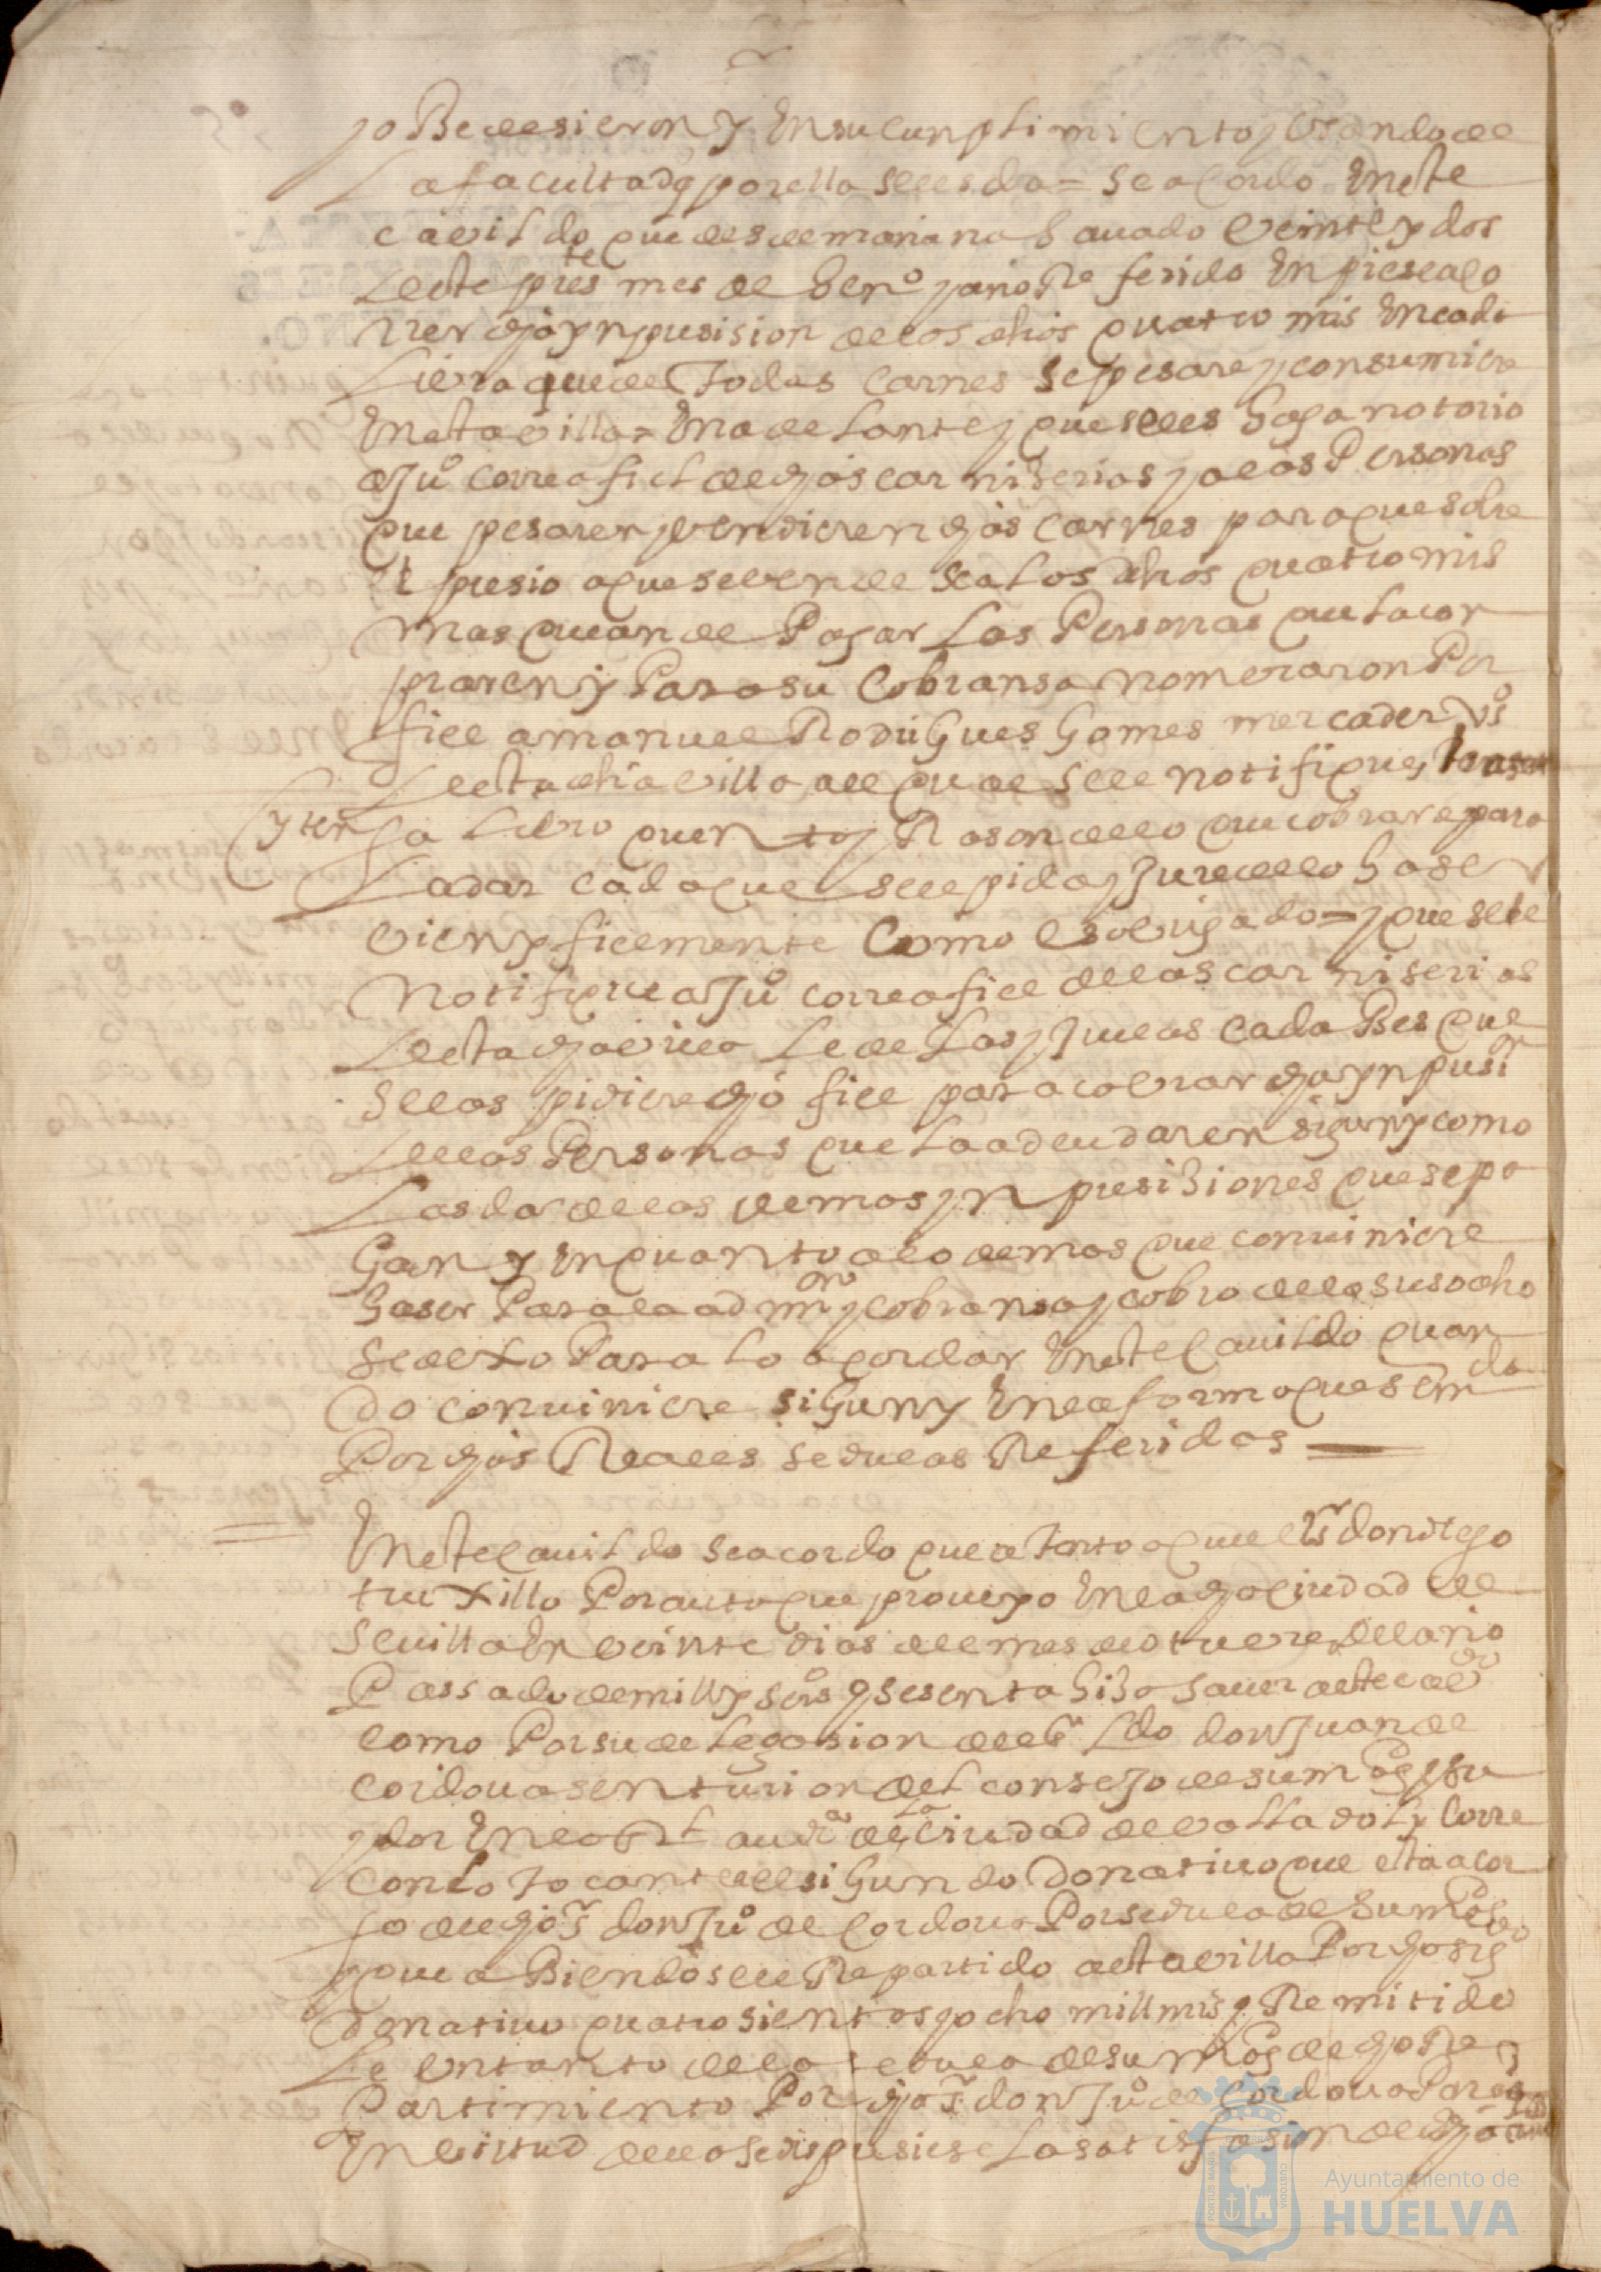 y oBedesieron y En su cunplimiento y Usando de
La facultad q por ella se les da = se acordo En este
cavildo que desde mañana Savado veinte y dos
deste pres.te mes de Hen.º y año Referido Enpiese a co
rrer dha ynpusision de los dhos quatro mrs En cada
Livra que de todas carnes se pesare y consumiere
En esta villa = En adelante y que se les haga notorio
a Ju.º Correa fiel de dhas carniserias y a las Personas
que pesaren y vendieren dhas carnes para que sobre
el presio a que se vende sea los dhos quatro mrs
mas que an de Pagar Las Personas que la con
praren y Para su Cobransa nomvraron Por
fiel a manuel Rodrigues Gomes mercader vs.º
desta dha villa al qual se le notifique, tenga
Libro quenta y Rason de lo que cobrare para
La dar cada que se le pida y Jure de lo haser
vien y fielmente Como es obligado = y que se le
Notifique a Ju.º correa fiel de las carniserias
desta dha villa Le de Las Sedulas cada Bes que
se las pidiere dho fiel para cobrar dha ynpusi.on
de las Personas que la adeudaren sigun y como
Las da de las demas ynpusisiones que se pa
Gan y En quanto a lo demas que conviniere
Haser Para la adm.on y cobransa y cobro de lo susodho
se dexo Para lo acordar En este Cavildo quan
do conviniere sigun y En la forma que se m.da
Por dhas Reales sedulas Referidas —
En este Cavildo se acordo que atento a que el s.r don diego
truxillo Por auto que proveyo En la dha Ciudad de
Sevilla En veinte dias del mes de otuvre del año
Passado de mill y seis.os y sesenta hiso saver a este cav.do
como Por su delegasion del s.r L.do don Juan de
cordova senturion del consejo de su mag.d su
oydor En la R.l aud.a de la Ciudad de valladolid Corre
con lo tocante al sigundo Donativo que esta a car
go de dho s.r don Ju.º de Cordova Por sedula de Su Mag.d
y que aBiendosele Repartido a esta villa Por dho sig.do
donativo quatrosientos y ocho mill mrs y Remitido
Le un tanto de la sedula de su Mag.d de dho Re
Partimiento Por dho s.r don Ju.º de Cordova Para q
En virtud de lo se dispusiese La satisfasion de dha
Ayuntamiento de
HUELVA